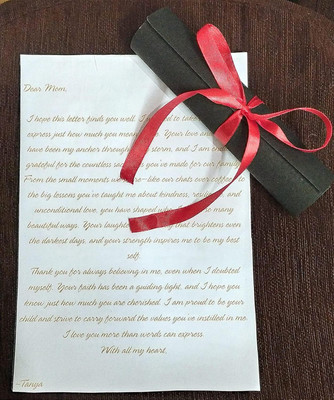 Dear Mom,
I hope this letter finds you well. I to take
express just how much you mean Your love an
have been my anchor through storm, and I am
grateful for the countless sac you've made for our family
From the small moments we like our chats over coffee to
the big lessons you've taught me about kindness, and
unconditional love, you have shaped my so many
beautiful ways. Your laugh that brightens even
the darkest days, and your strength inspires me to be my best
self.
Thank you for always believing in me, even when I doubted
myself. Your faith has been a guiding light, and I hope you
know just how much you are cherished. I am proud to be your
child and strive to carry forward the values you've instilled in me.
I love you more than words can express.
With all my heart,
~Tanya